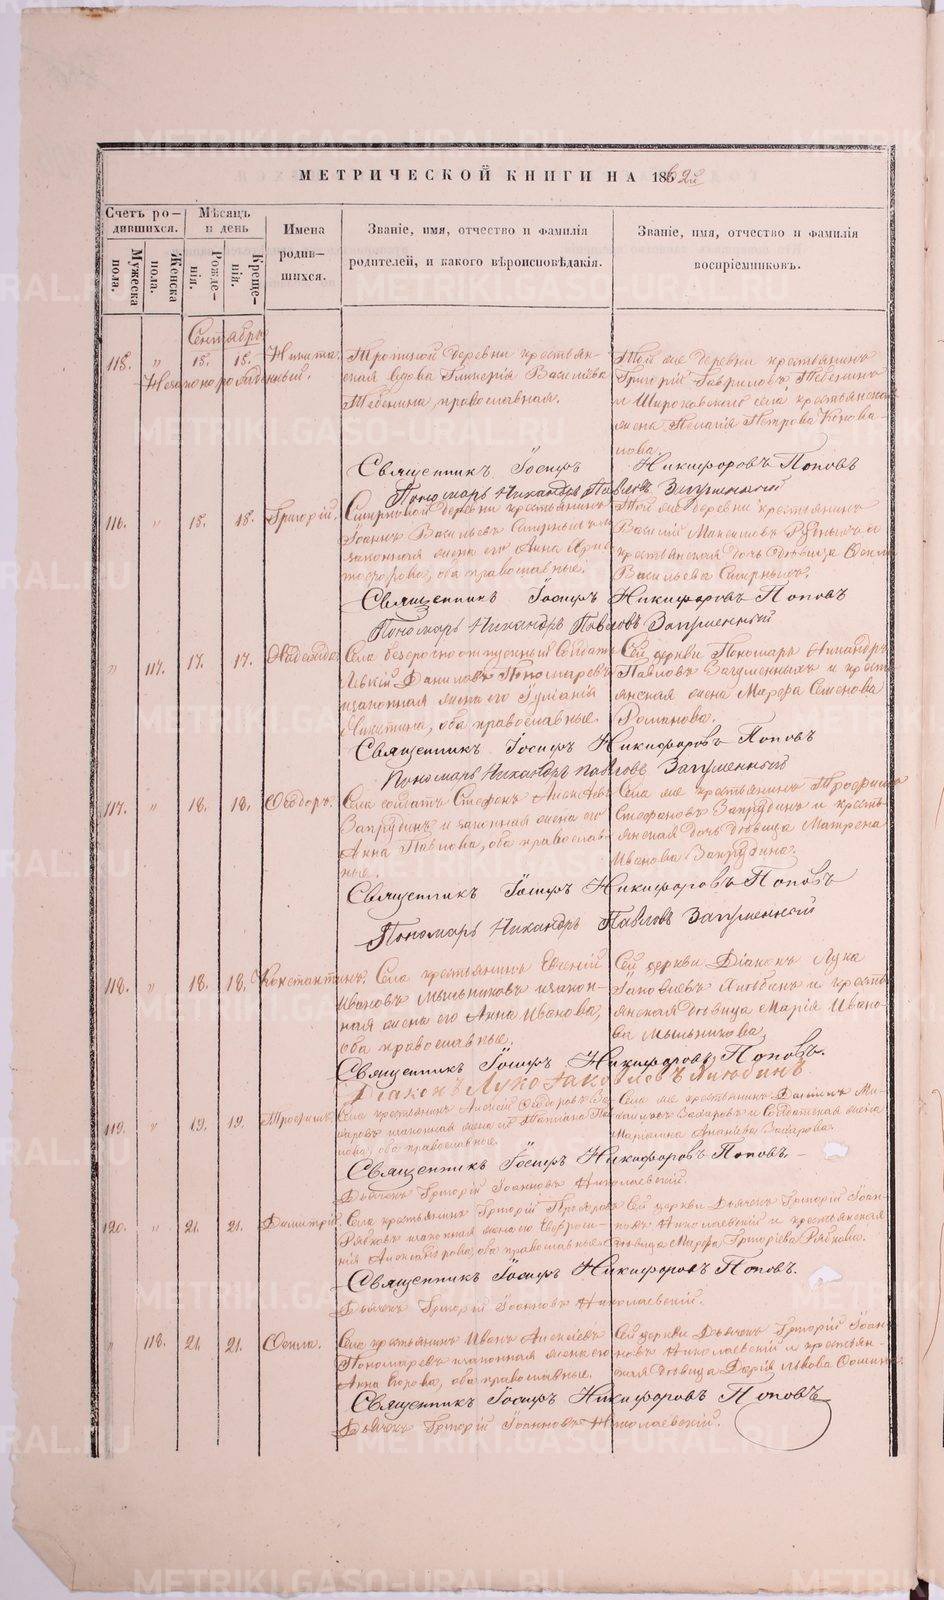 МЕТРИЧЕСКОЙ КНИГИ НА 1862й
Счетъ родившихся.
Мѣсяцъ и день
Имена родившихся.
Званіе, имя, отчество и фамилія родителей, и какого вѣроисповѣдакія.
Званіе, имя, отчество и фамилія воспріемниковъ.
Мужеска пола.
Женска пола.
Рожденія.
Крещенія.
Сентябрь
115. " 15. 15. Никита.
Незаконнорожденный.
деревни крестьян-
ская вдова Гликерія Васильева
Тебенина, православная.
Той же деревни крестьянинъ
Григорій Гавриловъ Тебенинъ
и Широковскаго села крестьянская
жена Пелагія Петрова Конова-
лова.
Священникъ Іосифъ Никифоровъ Поповъ
Пономарь Никандръ Павловъ Загуменный
116. " 15. 15. Григорій.
деревни крестьянинъ
Іоаннъ Васильевъ и
законная жена его Анна Хрис-
тофорова, оба православные.
Той же деревни крестьянинъ
Василій Максимовъ и
крестьянская дочь дѣвица
Васильева
Священникъ Іосифъ Никифоровъ Поповъ
Пономарь Никандръ Павловъ Загуменный
" 117. 17. 17. Надежда.
Села безсрочноотпускный солдатъ
Даниловъ Пономаревъ
и законная жена его Іуліанія
Никитина, оба православные.
Сей церкви Пономарь Никандръ
Павловъ Загуменныхъ и крест-
янская жена Марфа Семенова
Романова.
Священникъ Іосифъ Никифоровъ Поповъ
Пономарь Никандръ Павловъ Загуменный
117. " 18. 18. Ѳеодоръ.
Села солдатъ Стефанъ Алексѣевъ
Запрудинъ и законная жена его
Анна Павлова, оба православ-
ные.
Села же крестьянинъ Трофимъ
Стефановъ Запрудинъ и кресть-
янская дочь дѣвица Матрена
Иванова Запрудина.
Священникъ Іосифъ Никифоровъ Поповъ
Пономарь Никандръ Павловъ Загуменный
118. " 18. 18. Константинъ.
Села крестьянинъ Евгеній
Ивановъ Мыльниковъ и закон-
ная жена его Анна Иванова,
оба православные.
Сей церкви Діаконъ Лука
Іаковлевъ Любинъ и кресть-
янская дѣвица Марія Ивано-
ва Мыльникова,
Священникъ Іосифъ Никифоровъ Поповъ.
Діаконъ Лука Іаковлевъ Любинъ
119. " 19. 19. Трофимъ.
Села крестьянинъ Алексій Ѳедоровъ За-
харовъ и законная жена его Татіана Па-
лова, оба православные.
Села же крестьянинъ Даніилъ Ми-
хайловъ Захаровъ и Солдатская жена
Маріамна Ананіева Захарова.
Священникъ Іосифъ Никифоровъ Поповъ.
Дьячекъ Григорій Іоанновъ Николаевскій.
120. " 21. 21. Димитрій.
Села крестьянинъ Григорій
Рябковъ и законная жена его Евфроси-
нія Александрова, оба православные.
Сей церкви Дьячекъ Григорій Іоан-
новъ Николаевскій и крестьянская
дѣвица Марфа Григоріева Рябкова.
Священникъ Іосифъ Никифоровъ Поповъ.
Дьячекъ Григорій Іоанновъ Николаевскій.
" 118. 21. 21. Ѳекла.
Села крестьянинъ Иванъ Алексѣевъ
Пономаревъ и законная жена его
Анна Егорова, оба православные.
Сей церкви Дьячекъ Григорій Іоан-
новъ Николаевскій и крестьян-
ская дѣвица Дарія Львова Ѳомина.
Священникъ Іосифъ Никифоровъ Поповъ
Дьячекъ Григорій Іоанновъ Николаевскій.
METRIKI.GASO-URAL.RU